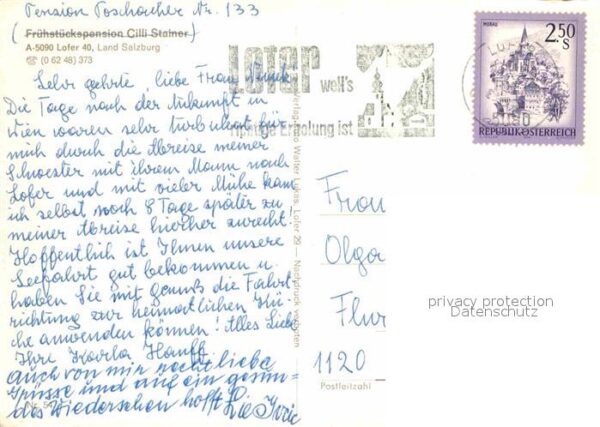 Pension Poschacher Nr. 133
( Frühstückspension Cilli Stainer )
A-5090 Lofer 40, Land Salzburg
☎ (0 62 48) 373
Sehr geehrte, liebe Frau
Die Tage nach der Ankunft in
Wien waren sehr turbulent für
mich durch die Abreise meiner
Schwester mit ihrem Mann nach
Lofer und mit vieler Mühe kam
ich selbst noch 8 Tage später zu
meiner Abreise hierher zurecht!
Hoffentlich ist Ihnen unsere
Seefahrt gut bekommen u.
haben Sie mit genuß die Fahrt-
richtung zur heimatlichen Kü-
che anwenden können! Alles Liebe
Ihre Karla Hauff
auch von mir recht liebe
Grüsse und auf ein gesun-
des Wiedersehen hofft
Verlag Foto Walter Lukas, Lofer 29 Nachdruck verboten
LOFER weil's
Erholung ist
MURAU
2.50
S
REPUBLIK ÖSTERREICH
Frau
Olga
Flur
1120
Postleitzahl
privacy protection
Datenschutz